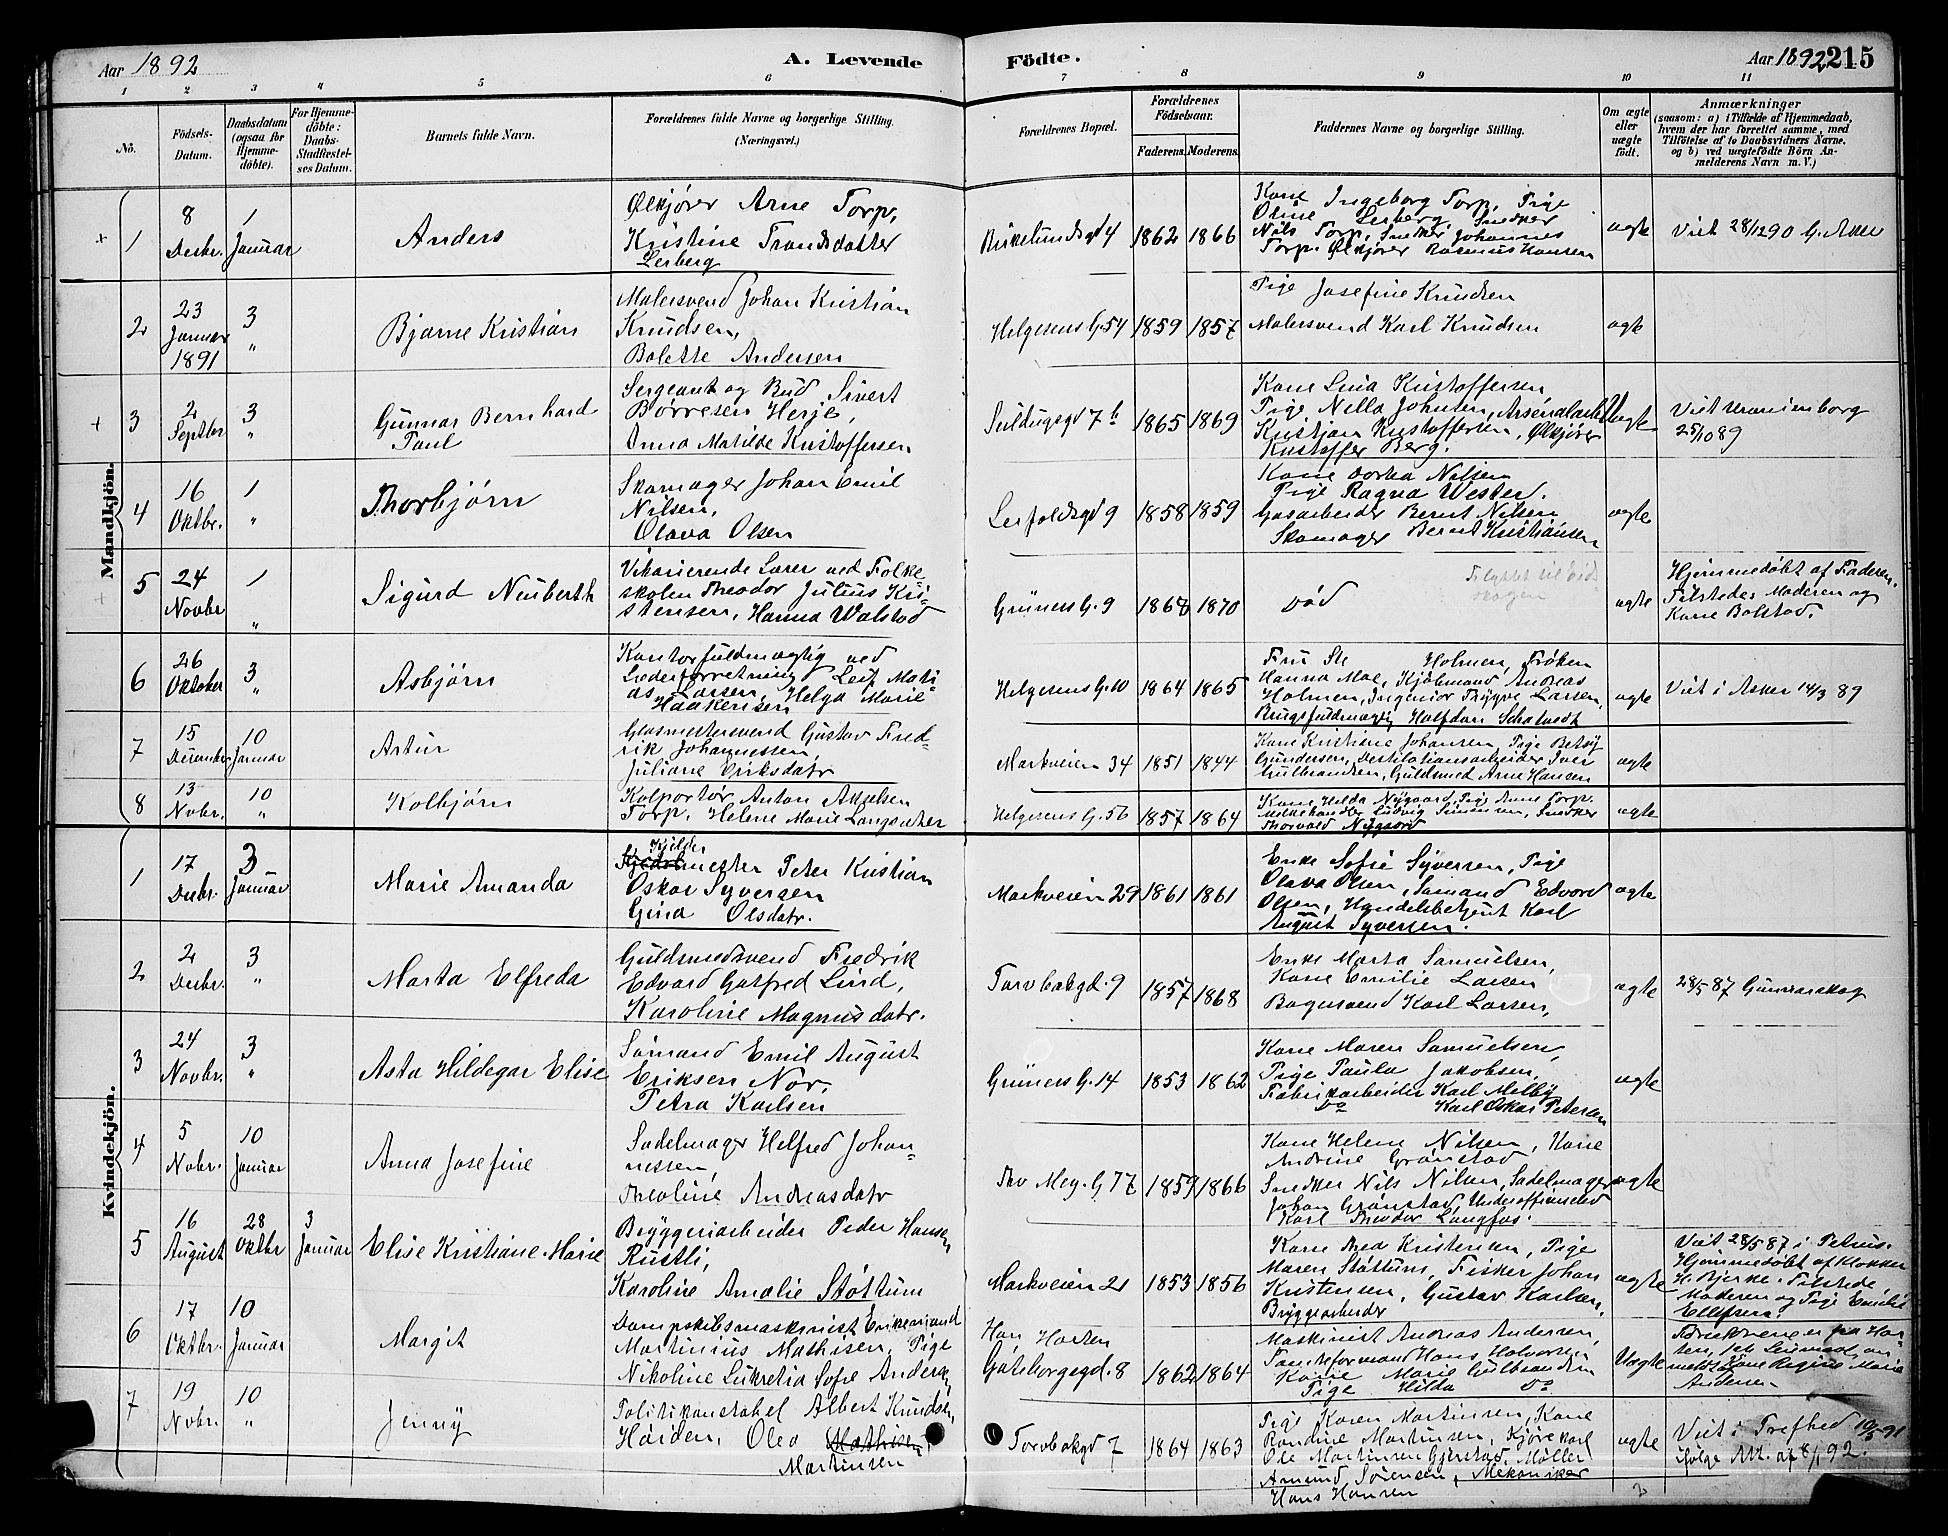 Aar 1892
A. Levende
Födte.
Aar 1892 215
1 2 3 4 5 6 7 8 9 10 11
No.
Födsels-
Datum.
Daabsdatum
(ogsaa for
Hjemme-
döbte).
For Hjemme-
döbte:
Daabs-
Stadfæstel-
ses Datum.
Barnets fulde Navn.
Forældrenes fulde Navne og borgerlige Stilling.
(Næringsvei.)
Forældrenes Bopæl.
Forældrenes
Födselsaar.
Faderens. Moderens.
Faddernes Navne og borgerlige Stilling.
Om ægte
eller
uægte
födt.
Anmærkninger
(saasom: a) i Tilfælde af Hjemmedaab,
hvem der har forrettet samme, med
Tilföielse af to Daabsvidners Navne.
og b) ved uægtefödte Börn An-
melderens Navn m. V.)
Mandkjön.
1
8
Decbr.
1
Januar
Anders
Ølkjører Arne Torp,
Kristine Trondsdatter
Lerberg
Birkelundsgd 4
1862
1866
Kone Ingeborg Torp, Pige
Oline Lerberg, Snedker
Nils Torp, Snedker Johannes
Torp. Ølkjører Rasmus Hansen
ægte
Viet 28/12 90 G. Aker
2
23
Januar
1891
3
"
Bjarne Kristian
Malersvend Johan Kristian
Knudsen,
Bolette Andersen
Helgesens G. 54
1859
1857
Pige Josefine Knudsen
Malersvend Karl Knudsen
ægte
3
2
Septbr
3
"
Gunnar Bernhard
Paul
Sergeant og Bud Sivert
Børresen Herje,
Anna Matilde Kristoffersen
7 b
1865
1869
Kone Lina Kristoffersen
Pige Nella Johnsen, Arsenalarb.
Kristian Kristoffersen, Ølkjører
Kristoffer Berg.
Viet Uranienborg
25/10 89
4
16
Oktbr.
1
"
Thorbjørn
Skomager Johan Emil
Nilsen,
Olava Olsen
9
1858
1859
Kone Dorthea Nilsen
Pige Ragna Wester.
Gasarbeider Bernt Nilsen
Skomager Bernt Kristiansen
ægte
5
24
Novbr
1
"
Sigurd Neuberth
Vikarierende Lærer ved Folke
skolen Theodor Julius Kri-
stensen, Hanna Walstad
Grüners G. 9
1868
1870
Død
Flyttet til Eid-
skogen
ægte
Hjemmedøbt af Faderen.
Tilstede: Moderen og
Kone Bolstad.
6
26
Oktober
3
"
Asbjørn
Kontorfuldmægtig ved
Læderforretning Leif Mati-
as Larsen, Helga Marie
Haakensen
Helgesens G. 10
1864
1865
Fru Holmen, Frøken
Hanna Moe, Kjøbmand Andreas
Holmen, Ingeniør Thrygve Larsen,
Brugsfuldmægtig Halfdan
ægte
Viet i Asker 14/3 89
7
15
December
10
Januar
Artur
Glasmestersvend Gustav Fred-
rik Johannessen,
Juliane Eriksdatr
Markveien 34
1851
1844
Kone Kristiane Johansen, Pige Betsy
Gundersen, Destilationsarbeider Iver
Gulbrandsen, Guldsmed Arne Hansen
ægte
8
13
Novbr.
10
"
Kolbjørn
Kolportør Anton Akselsen
Torp, Helene Marie Langsæther
Helgesens G. 56
1857
1864
Kone Hilda Nygaard, Pige Anne Torp.
Melkehandler Ludvig Simensen, Snedker
Thorvald Nygaard
ægte
Kvindekjön.
1
17
Decbr.
3
Januar
Marie Amanda
Kjelder
mester Peter Kristian
Oskar Syversen
Gina Olsdatr.
Markveien 29
1861
1861
Enke Sofie Syversen, Pige
Olava Olsen, Sømand Edvard
Olsen, Handelsbetjent Karl
August Syversen.
ægte
2
2
Decbr.
3
"
Marta Elfreda
Guldsmedsvend Fredrik
Edvard Gotfred Lind,
Karoline Magnusdatr.
Torvbakgd. 9
1857
1868
Enke Marta Samuelsen,
Kone Emilie Larsen
Bagersvend Karl Larsen,
ægte
28/5 87 Gunnarskog
3
24
Novbr.
3
"
Asta Hildegar Elise
Sømand Emil August
Eriksen Nor.
Petra Karlsen
Grüners G. 14
1853
1862
Kone Maren Samuelsen,
Pige Paula Jakobsen,
Fabrikarbeider Karl Melby
Do Karl Oskar Petersen
ægte
4
5
Novbr.
10
Januar
Anna Josefine
Sadelmager Helfred Johan-
nessen,
Theoline Andreasdatr
Thv Mey. G 77
1859
1866
Kone Helene Nilsen, Kone
Andrine Grønstad
Snedker Nils Nilsen, Sadelmager
Johan Grønstad, Underofficersad
Karl Theodor Langfos.
ægte
5
16
August
28
Oktbr
3
Januar
Elise Kristiane Marie
Bryggeriarbeider Peder Hansen
Rustli,
Karoline Amalie Støttum
Markveien 21
1853
1856
Kone Thea Kristensen, Pige
Maren Støttum, Fisker Johan
Kristensen, Gustav Karlsen,
Bryggearbeider
ægte
Viet 28/5 87 i Petrus.
Hjemmedøbt af Klokker
H. Bjerke. Tilstede
Moderen og Pige Emilie
Ellefsen.
6
17
Oktbr.
10
Januar
Margit
Dampskibsmaskinist Enkemand
Martinius Mathisen, Pige
Nikoline Lukretia Sofie Andersen,
Han Horten
Gøteborgsgd. 8
1862
1864
Maskinist Andreas Andersen,
Tomteformand Hans Halvorsen
Kone Marie Gulbrandsen
Pige Hilda Do
Uægte
Forældrene er fra Hor-
ten,
Kone Regine Marie
Andersen
7
19
Novbr.
10
"
Jenny
Politikonstabel Albert Knudsen
Høiden, Olea Mathisen
Martinsen
Torvbakgd 7
1864
1863
Pige Karen Martinsen, Kone
Randine Martinsen, Kjørekarl
Ole Martinsen Gjerstad, Møller
Amund Sørensen, Mekaniker
Hans Hansen
ægte
Viet i Trefhed 10/5 91
ifølge Att. af 8/1 92.